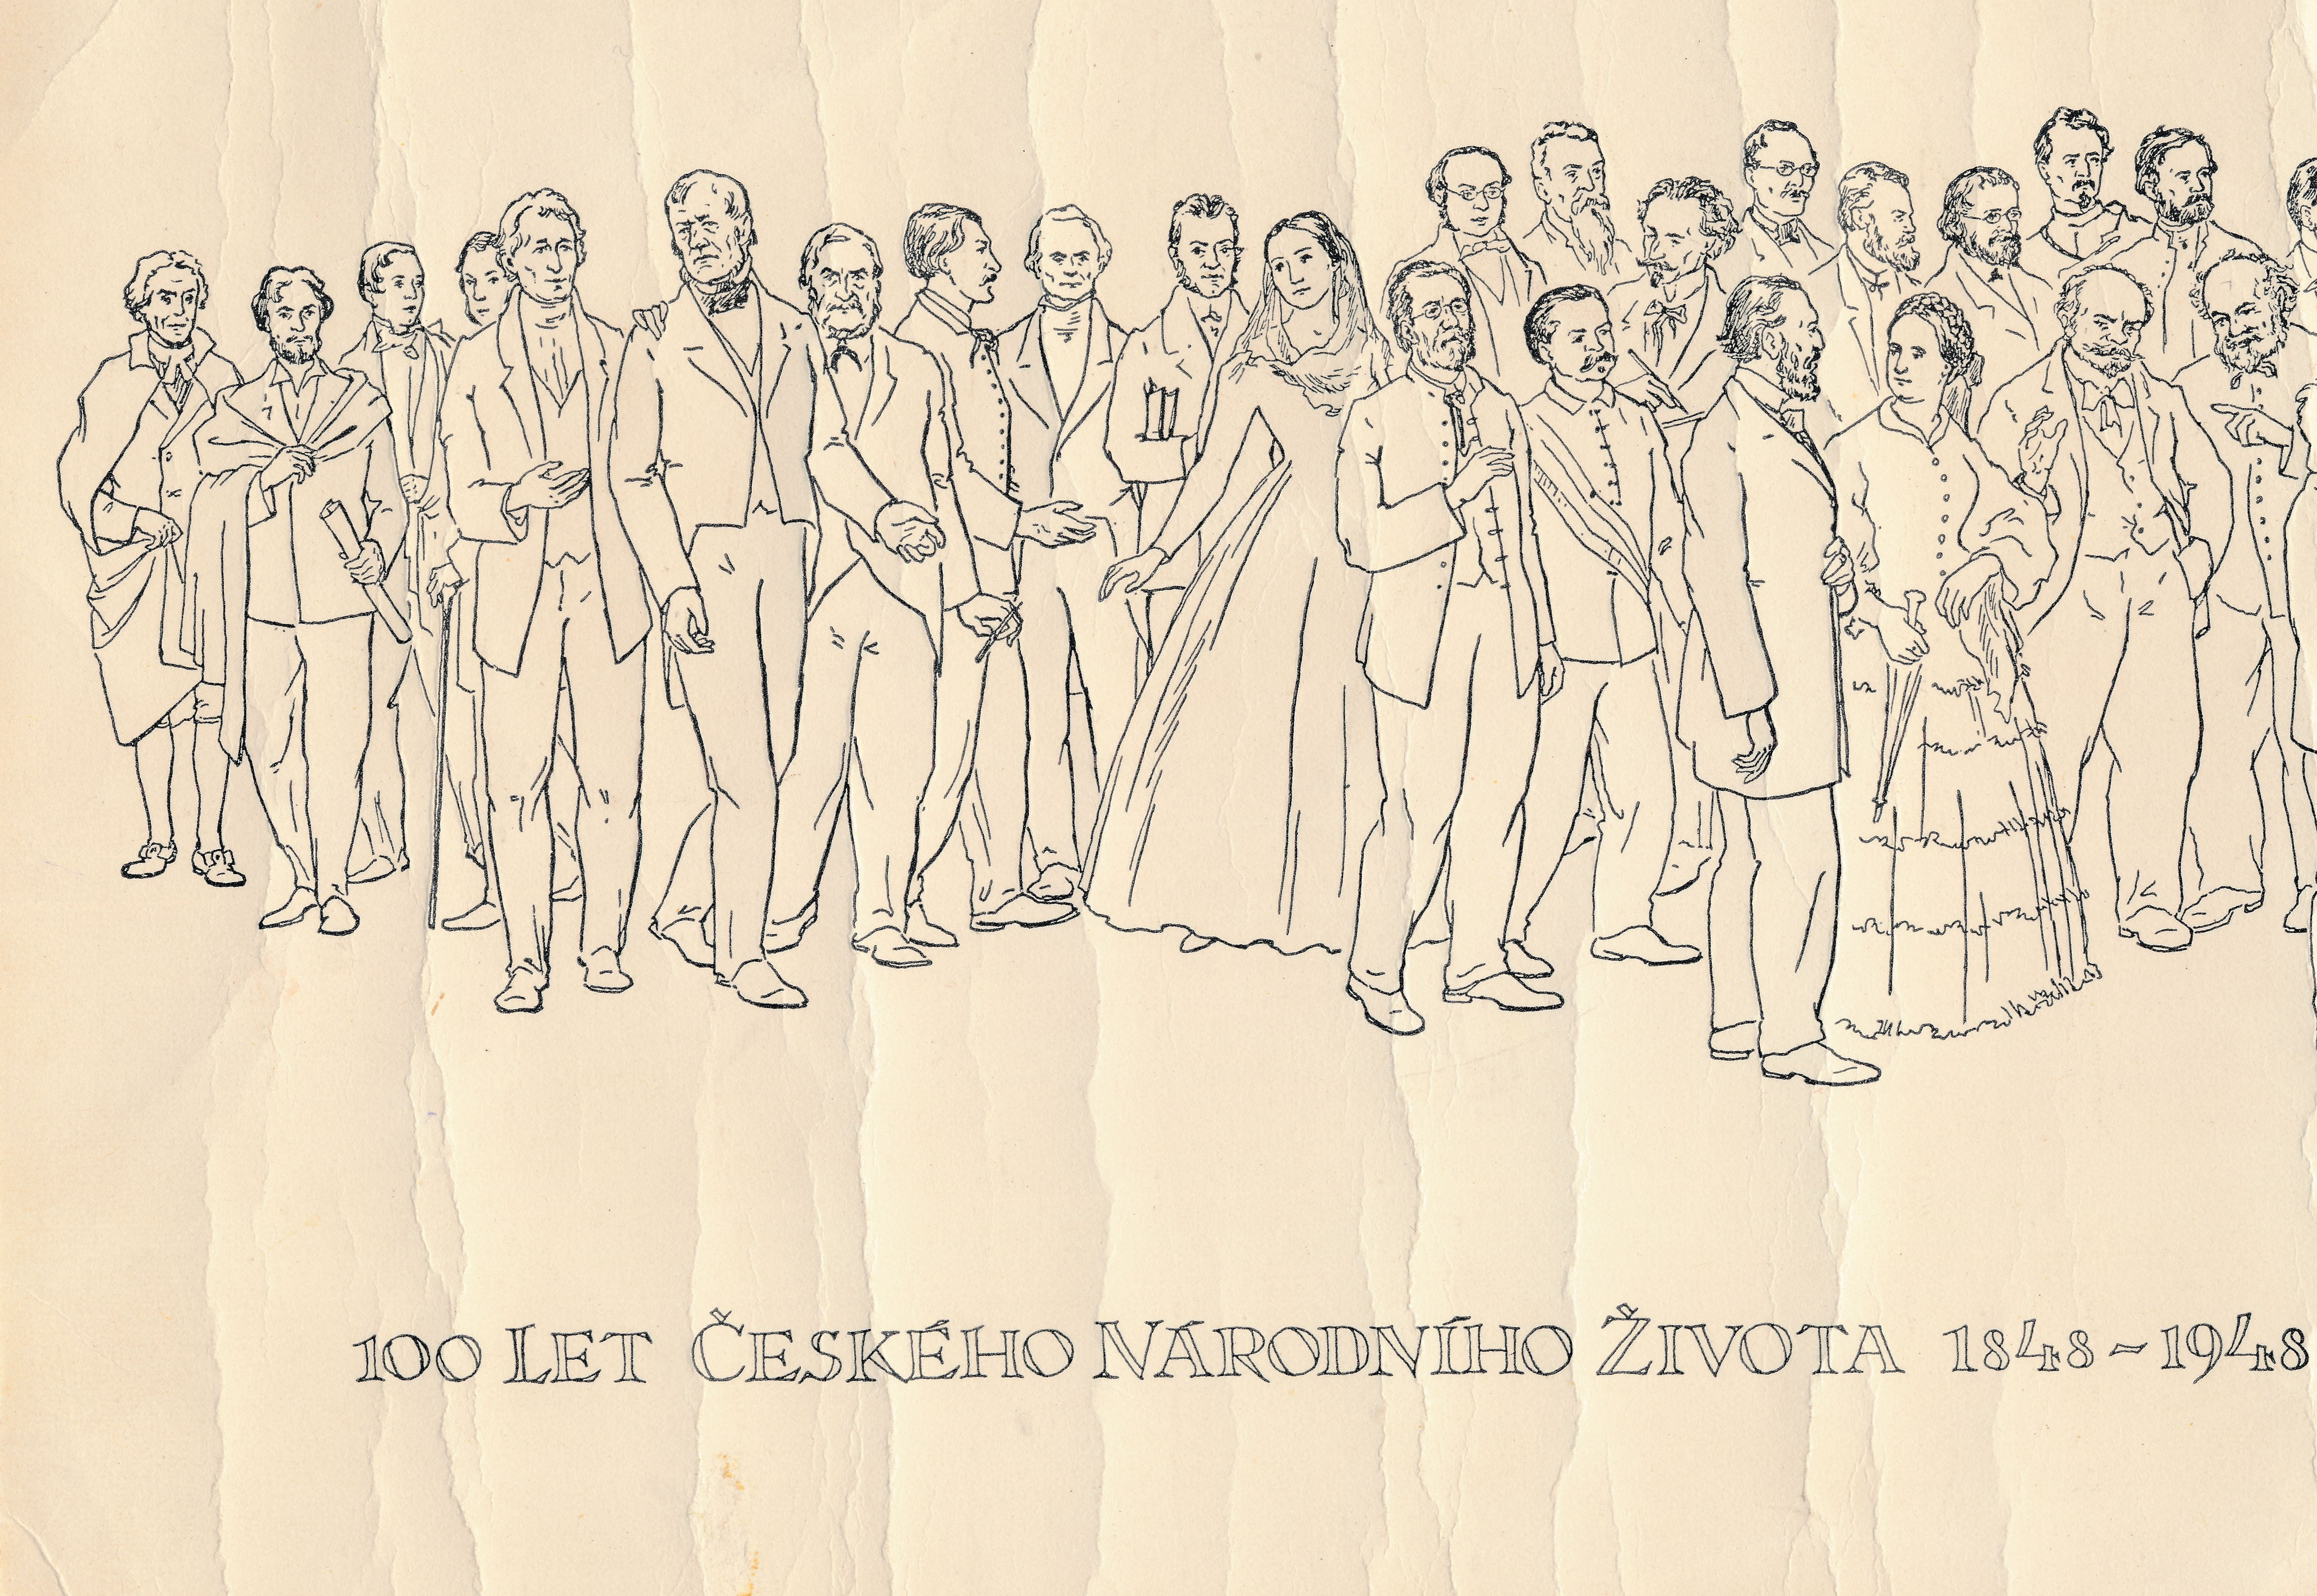 100 LET ČESKÉHO NÁRODNÍHO ŽIVOTA 1848-1948